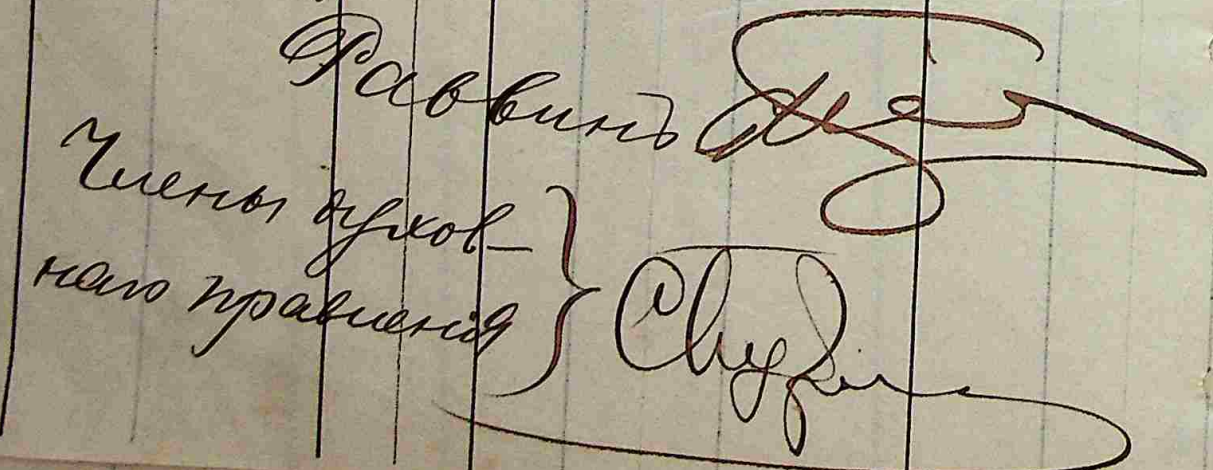 Раввинъ
Члены духов-
наго правленія